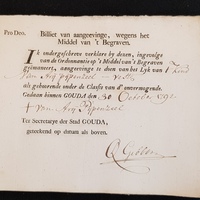 PRO DEO.
Billiet van aangeevinge, wegens het
Middel van 't Begraven.
Ik ondergeschreve verklare by dezen, ingevolge
van de Ordonnantie op 't Middel van 't Begraven
geëmaneert, aangeevinge te doen van het Lyk van 't kind
van Arij Pijpendeel
als gehoorende onder de Classis van d' onvermogende.
Gedaan binnen GOUDA den 30 October 179
van Arij Pijpendeel
Ter Secretarye der Stad GOUDA,
geteekend op datum als boven.